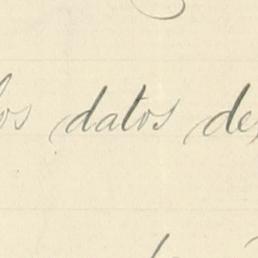 los datos de